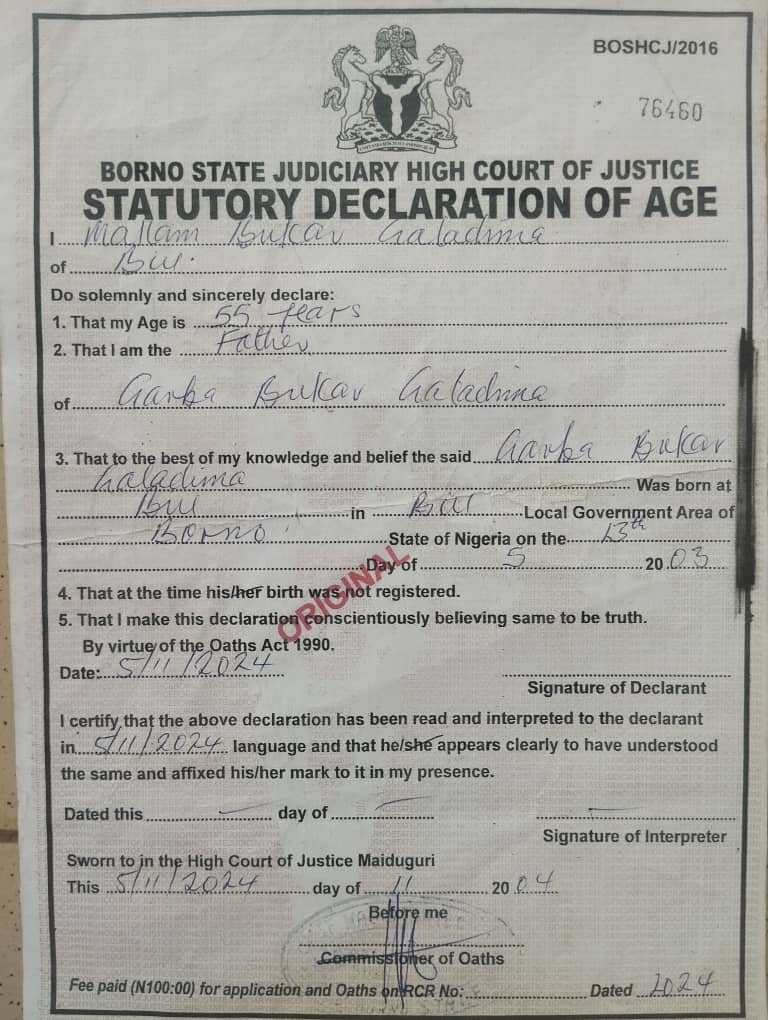 BOSHCJ/2016
76460
BORNO STATE JUDICIARY HIGH COURT OF JUSTICE
STATUTORY DECLARATION OF AGE
I Mallam Bukar Galadima
of Biu.
Do solemnly and sincerely declare:
1. That my Age is 55 Years
2. That I am the Father
of Garba Bukar Galadima
3. That to the best of my knowledge and belief the said Garba Bukar
Galadima Was born at
Biu in Biu Local Government Area of
Borno State of Nigeria on the 13th
Day of 5 20 03
4. That at the time his/her birth was not registered.
5. That I make this declaration conscientiously believing same to be truth.
ORIGINAL
By virtue of the Oaths Act 1990.
Date: 5/11/2024
Signature of Declarant
I certify that the above declaration has been read and interpreted to the declarant
in 5/11/2024 language and that he/she appears clearly to have understood
the same and affixed his/her mark to it in my presence.
Dated this day of
Signature of Interpreter
Sworn to in the High Court of Justice Maiduguri
This 5/11/2024 day of 11 20 04
Before me
Commissioner of Oaths
Fee paid (N100:00) for application and Oaths on RCR No: Dated 2024